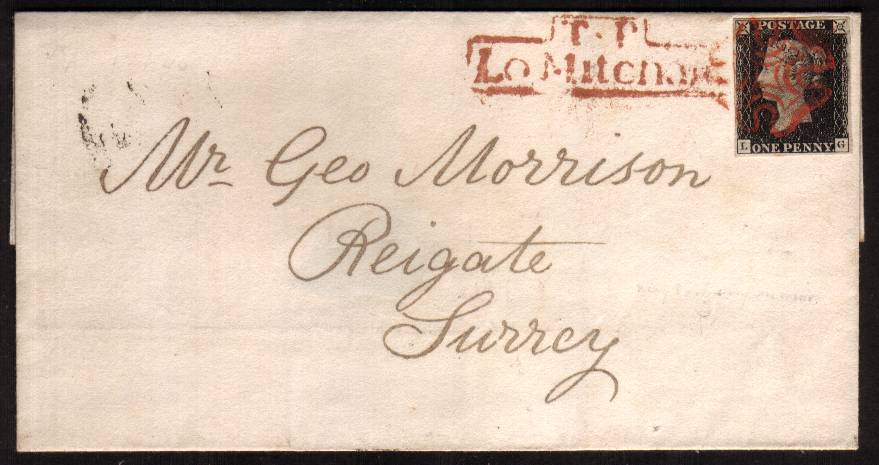 T.P
Lo Mitcham
POSTAGE
L G
ONE PENNY
Mr Geo Morrison
Reigate
Surrey